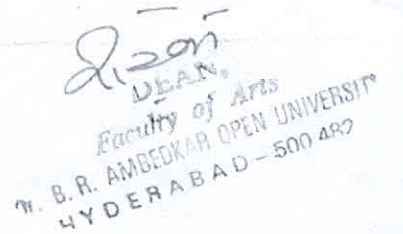 DEAN,
Faculty of Arts
B. R. AMBEDKAR OPEN UNIVERSITY
HYDERABAD - 500